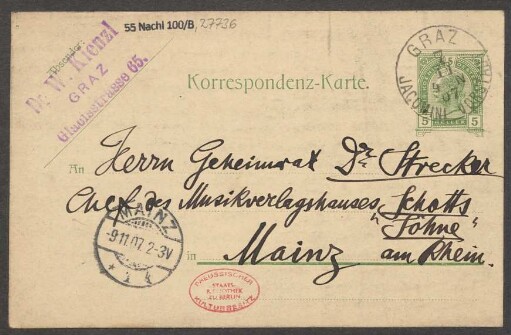 55 Nachl 100/B, 27736
Dr. W. Kienzl
GRAZ
Glacisstrasse 65.
GRAZ
7
11
9
07
JACOMINI-VORSTADT
Korrespondenz-Karte.
5 HELLER 5
An Herrn Geheimrat Dr. Strecker
Chef des Musikverlagshauses „Schotts
Söhne“
in Mainz am Rhein.
MAINZ
-9.11.07.2-3V
* 1 k
PREUSSISCHER
STAATS-
BIBLIOTHEK
ZU BERLIN
KULTURBESITZ